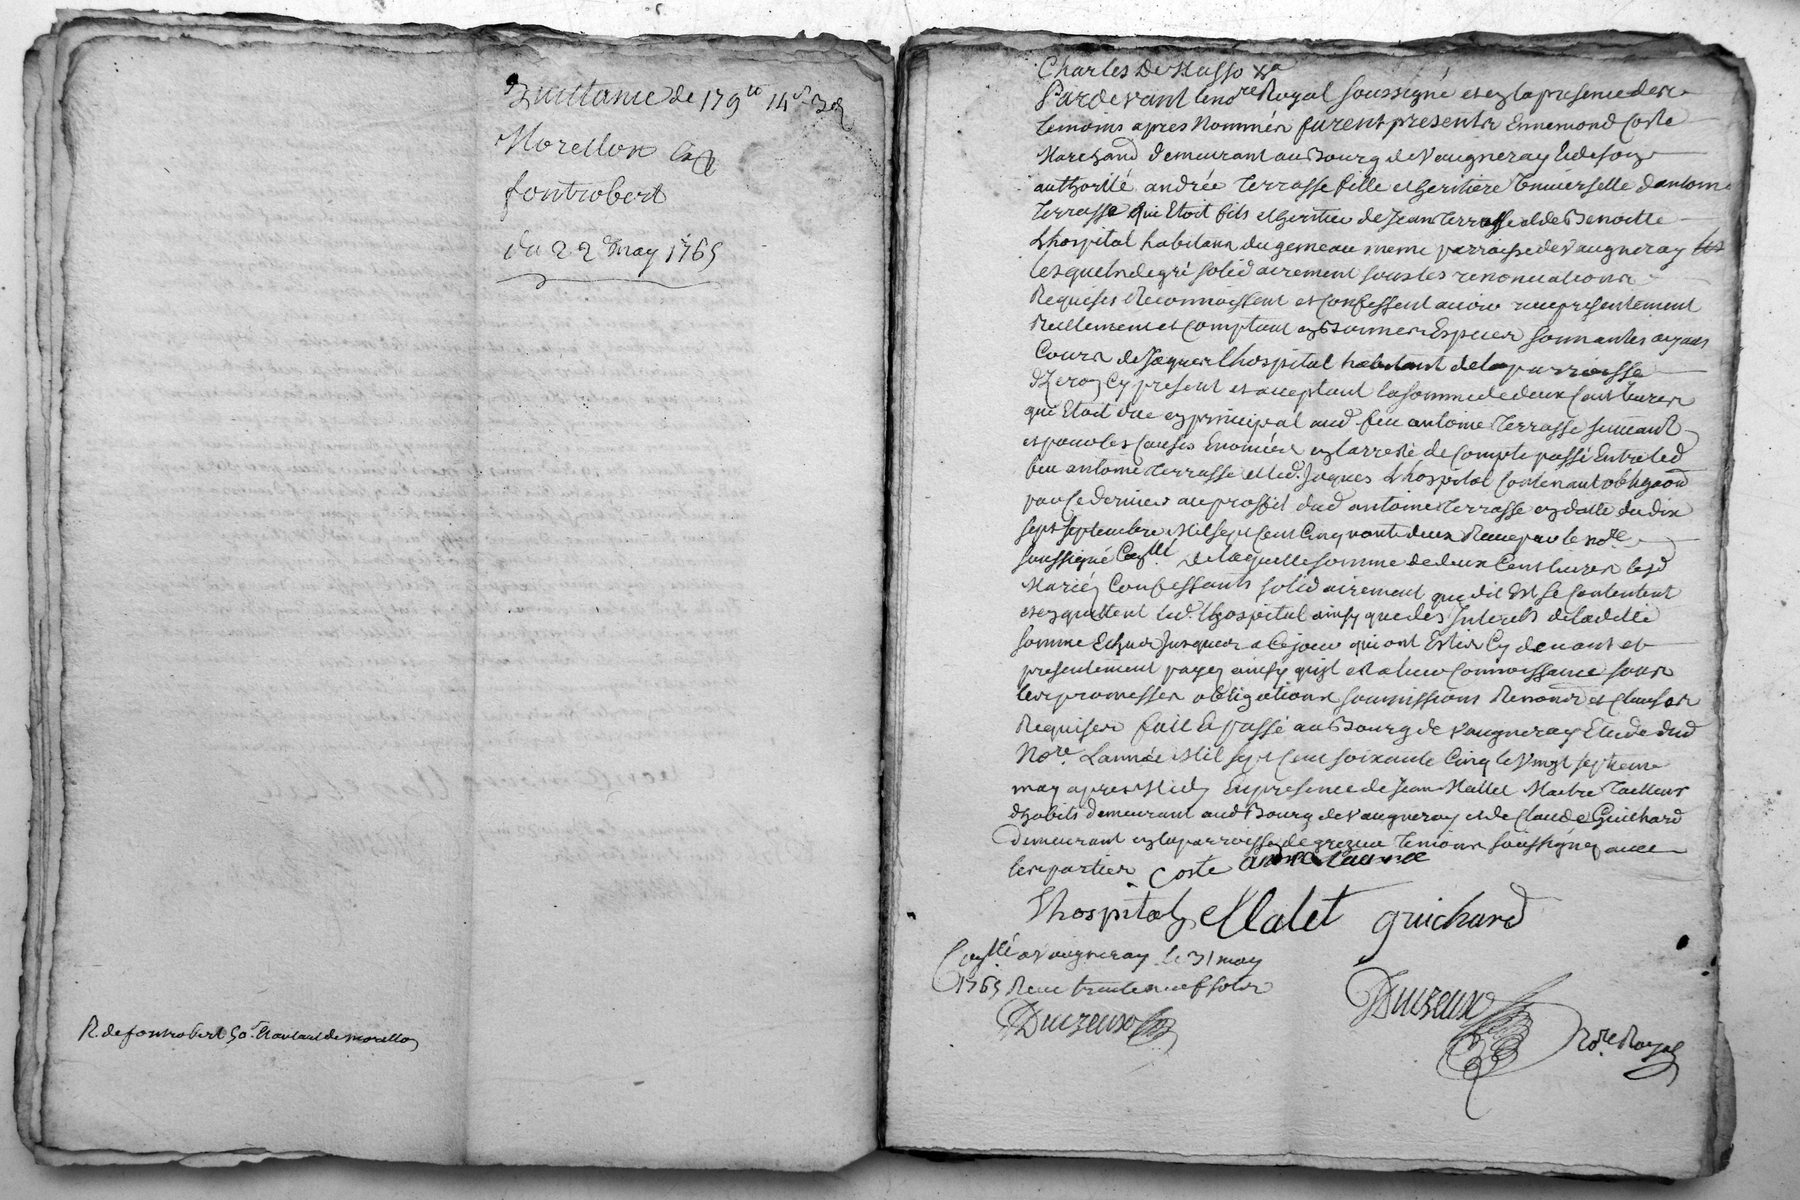 quittance de 179lt 14s 3d
Morellon
fontrobert
du 22 may 1765
R. de fontrobert 50s
Charles De Masso
Pardevant le nore Royal soussigné et en la presence des
temoins apres Nommés furent presents Ennemond Coste
Marchand demeurant au Bourg de Vaugneray et de son
authorité andrée Terrasse fille et heritiere universelle d'antoine
Terrasse qui Etoit fils et heritier de Jean Terrasse et de Benoitte
Lhospital habitans du gemeau meme parroisse de Vaugneray
lesquels de gré solidairement sous les renonciations
Requises Reconnoissent et confessent avoir reçu presentement
Reellement et comptant en Bonnes Especes sonnantes ayans
Cours de Jaques lhospital habitant de la parroisse
d'Yzeron Cy present et acceptant la somme de deux Cent livres
qui Etoit due en principal aud. feu antoine Terrasse suivant
et pour les causes Enoncées en l'arreté de Compte passé Entre led
feu antoine Terrasse et led. Jaques Lhospital Contenant obligaon
par ce dernier au proffit dud antoine Terrasse en datte du dix
sept septembre Mil sept Cent Cinquante deux Reçue par le nore
soussigné Conllé de laquelle somme de deux Cent livres lesd
Mariés Confessants solidairement que dit Est se Contentent
et en quittent led. lhospital ainsy que des Interets de la ditte
somme Echus Jusques a Ce jour qui ont Estés Cy devant et
presentement payez ainsy qu'il est a leur connoissance sous
les promesses obligations soumissions Renonons et Clauses
Requises fait et passé au Bourg de Vaugneray Etude dud
Nore. L'année Mil sept Cent soixante Cinq le Vingt septieme
may apres Midy En presence de Jean Mallet Maitre Tailleur
d'habits demeurant aud Bourg de Vaugneray et de Claude Guichard
Demeurant en la parroisse de grezieu Temoins soussignés avec
les parties Coste
Lhospital Malet guichard
Conllé a Vaugneray le 31 may
1765 Reçu trente neuf sols